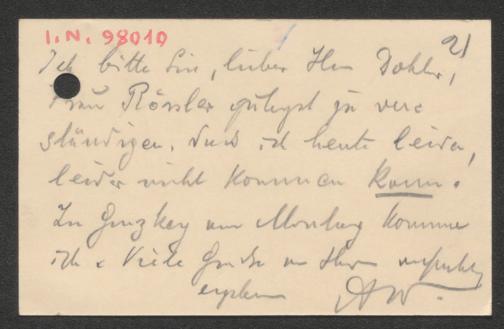 I.N. 98010
21
Ich bitte Sie, lieber Herr Dokter,
Frau Rössler gütigst zu ver-
ständigen, dass ich heute leider,
leider nicht kommen kann.
am Montag komme
ich. Viele Grüße an Ihren
ergebenen AW.